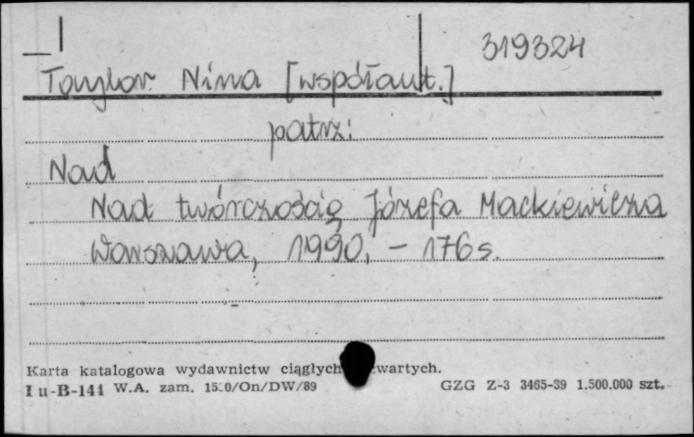 319324
Taylor Nina [współaut.]
patrz:
Nad
Nad twórczością Józefa Mackiewicza
Warszawa, 1990. - 176 s.
Karta katalogowa wydawnictw ciągłych wartych.
I u-B-141 W.A. zam. /On/DW/89 GZG Z-3 3465-39 1.500.000 szt.